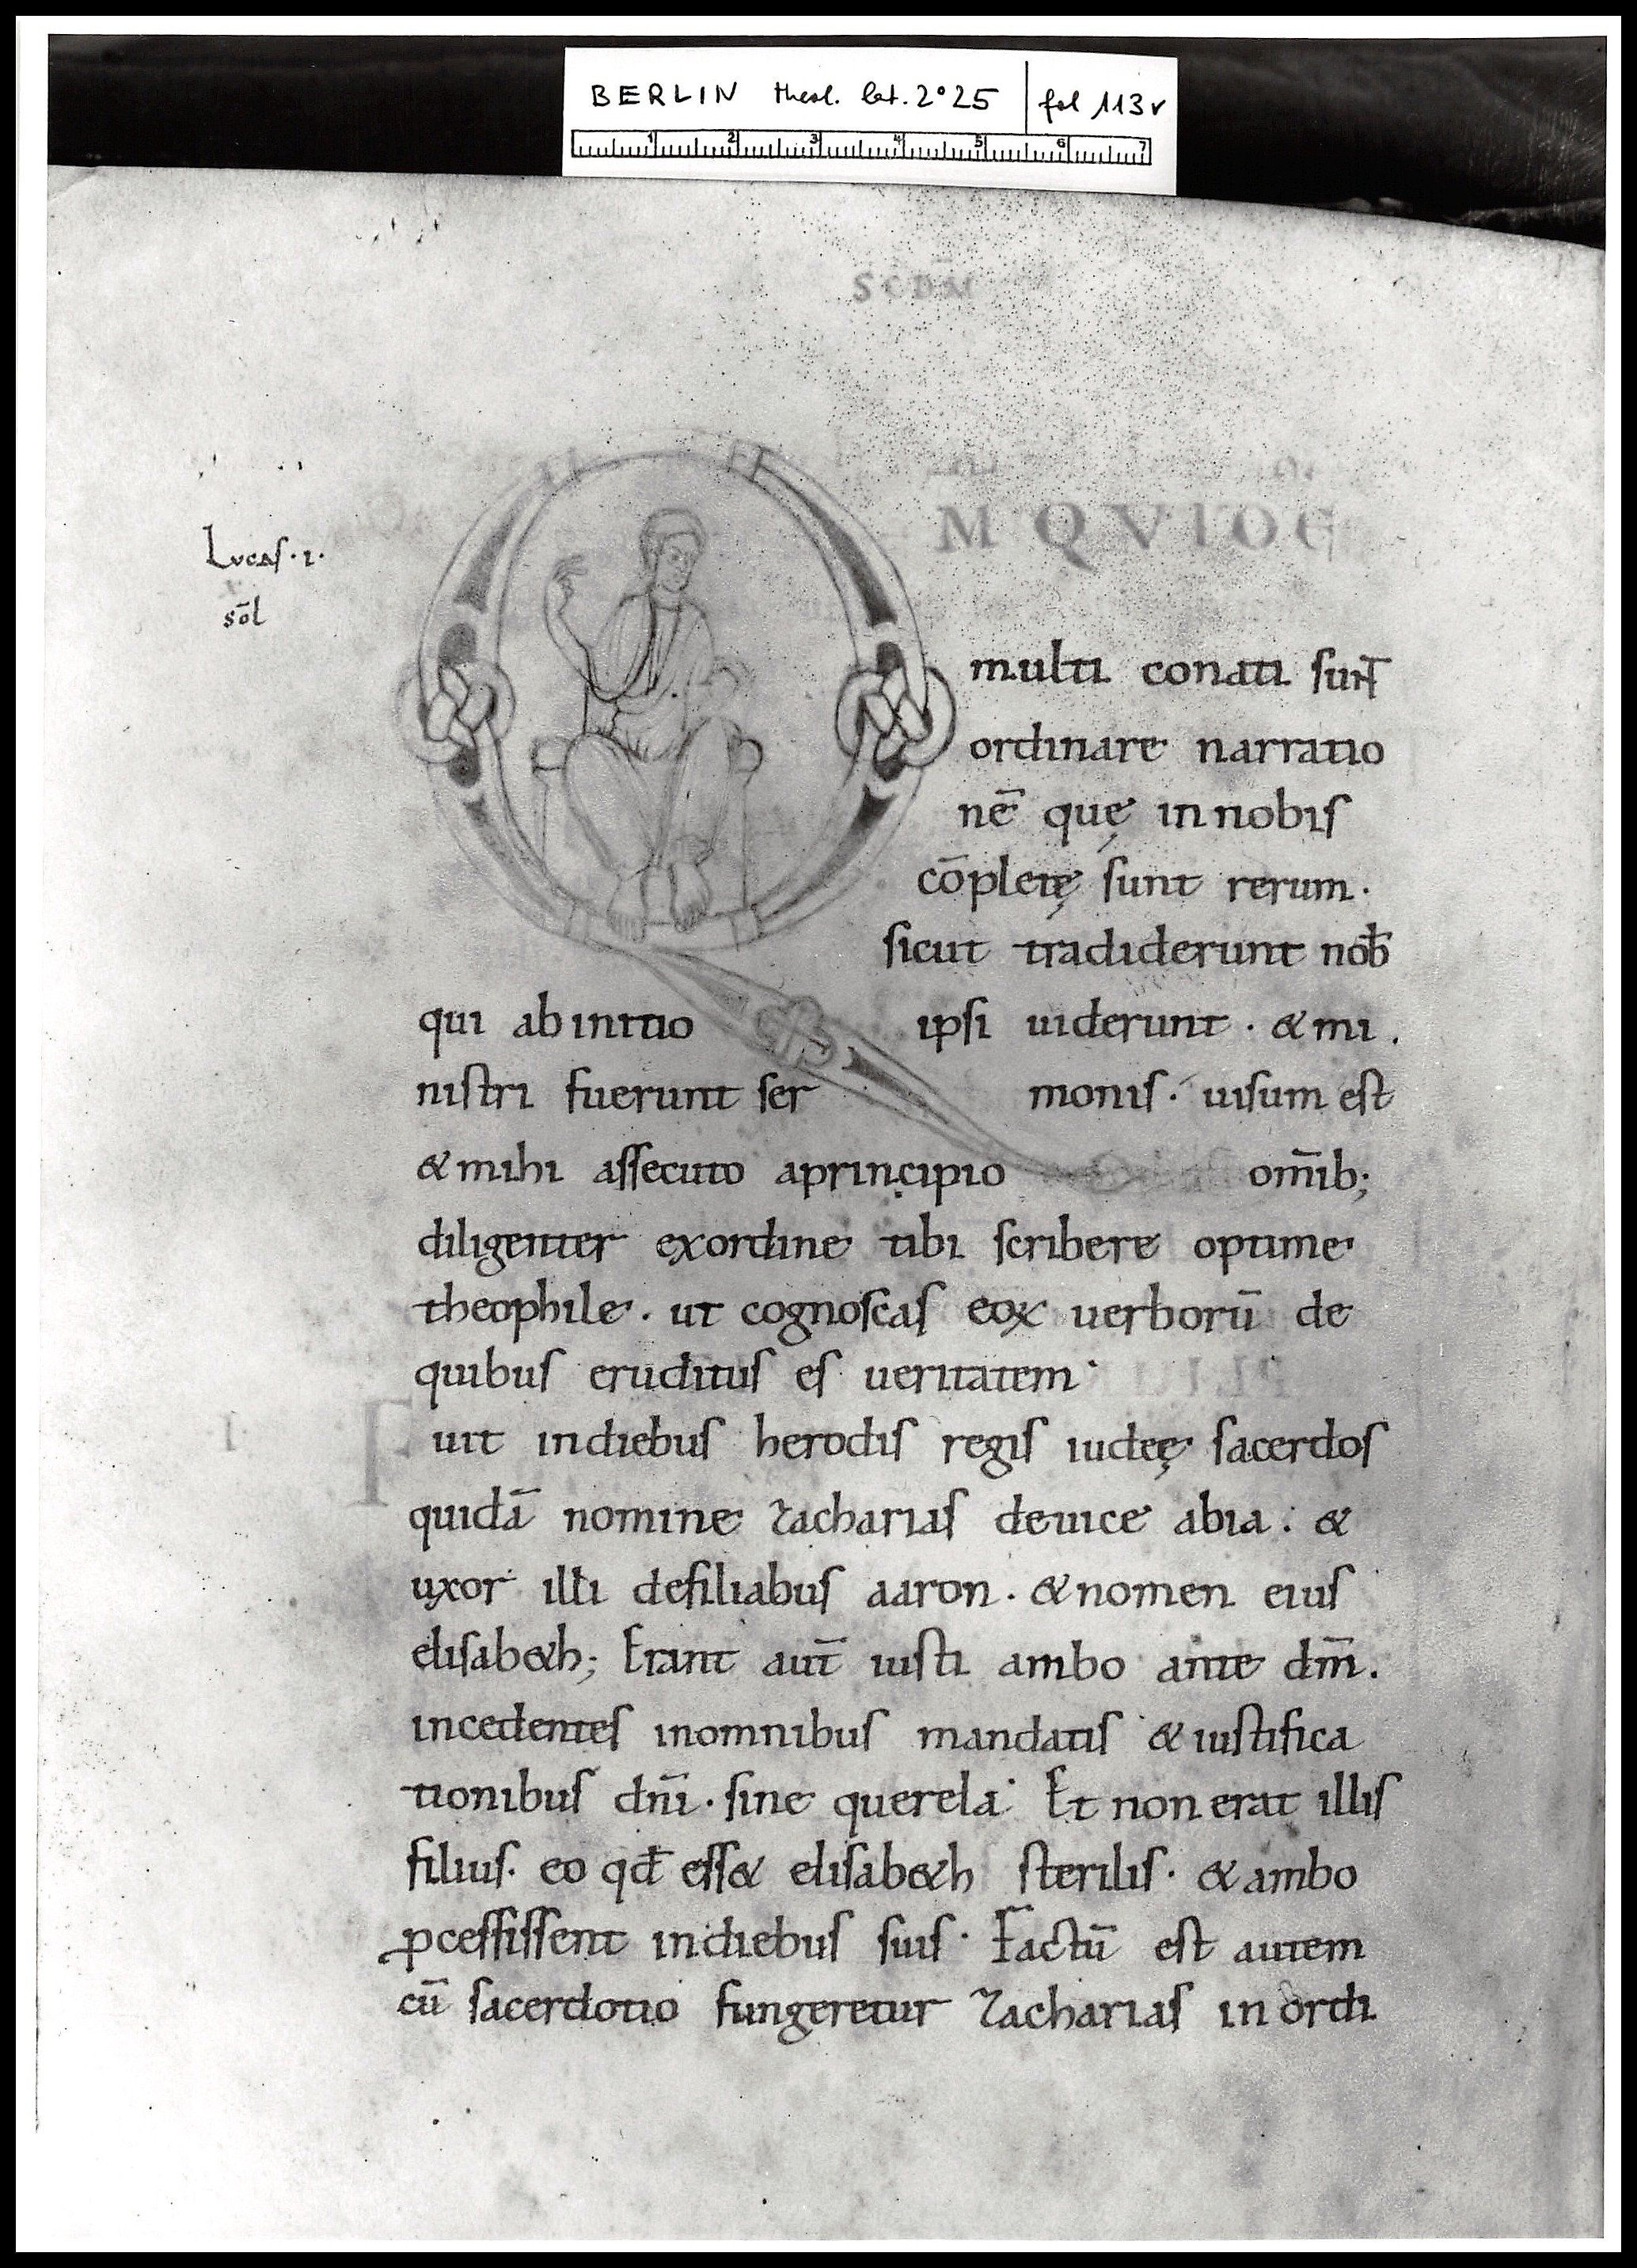 BERLIN theol. lat. 2° 25 | fol 113v
1 2 3 4 5 6 7
SCDM
M QVIDE
Lucaſ · 1 ·
sōl
multi conati ſunt
ordinare narratio
nē quę in nobiſ
cōpletę ſunt rerum ·
ſicut tradiderunt nob̄
qui ab initio ipſi uiderunt · & mi
niſtri fuerunt ſer moniſ · uiſum eſt
& mihi aſſecuto a principio om̄ib;
diligenter ex ordine tibi ſcribere optime
theophile · ut cognoſcaſ eoꝝ uerborū de
quibuſ erudituſ eſ ueritatem ·
I
F uit in diebuſ herodiſ regiſ iudeę ſacerdoſ
quidā nomine zachariaſ de uice abia · &
uxor illi de filiabuſ aaron · & nomen eiuſ
eliſab&h; Erant aut̄ iuſti ambo ante dm̄.
incedenteſ in omnibuſ mandatiſ & iuſtifica
tionibuſ dn̄i · ſine querela · Et non erat illiſ
filiuſ · eo qd̄ eſſ& eliſab&h ſteriliſ · & ambo
ꝓceſſiſſent in diebuſ ſuiſ · Factū eſt autem
cū ſacerdotio fungeretur zachariaſ in ordi